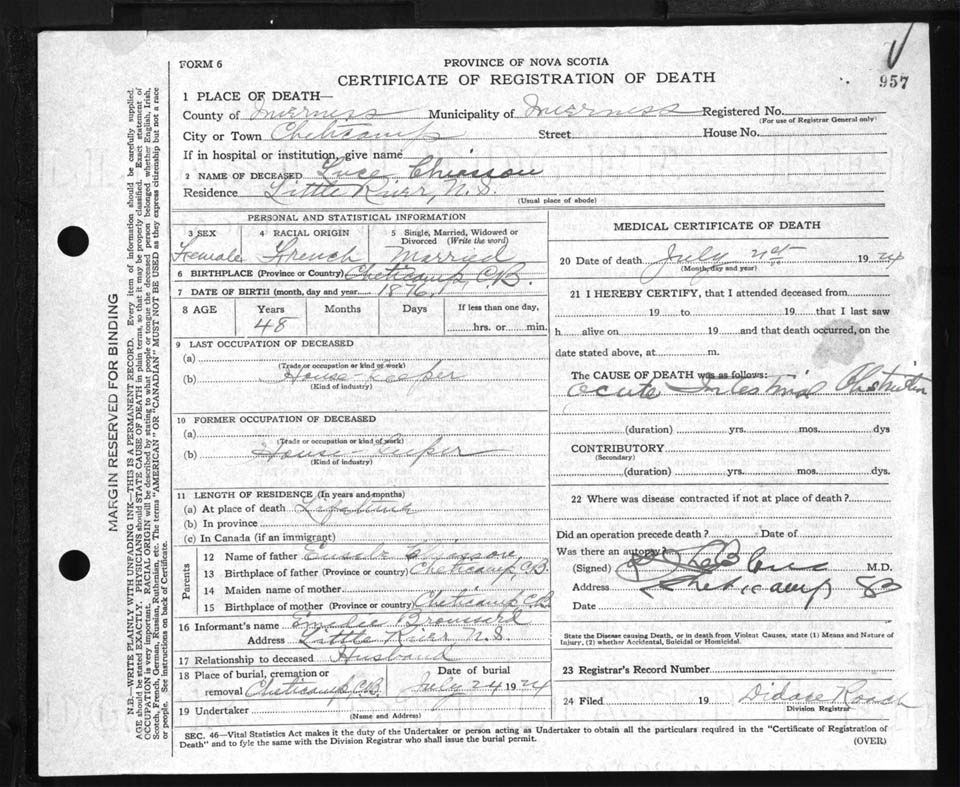 957
FORM 6
PROVINCE OF NOVA SCOTIA
CERTIFICATE OF REGISTRATION OF DEATH
1 PLACE OF DEATH—
County of Inverness Municipality of Inverness Registered No.
(For use of Registrar General only)
City or Town Cheticamp Street House No.
If in hospital or institution, give name
2 NAME OF DECEASED Luce Chiasson
Residence Little River, N.S.
(Usual place of abode)
PERSONAL AND STATISTICAL INFORMATION
3 SEX
Female
4 RACIAL ORIGIN
French
5 Single, Married, Widowed or
Divorced (Write the word)
Married
6 BIRTHPLACE (Province or Country) Cheticamp, C.B.
7 DATE OF BIRTH (month, day and year) 1876
8 AGE Years Months Days If less than one day,
48 hrs. or min.
9 LAST OCCUPATION OF DECEASED
(a)
(Trade or occupation or kind of work)
(b) House-Keeper
(Kind of industry)
10 FORMER OCCUPATION OF DECEASED
(a)
(Trade or occupation or kind of work)
(b) House-Keeper
(Kind of industry)
11 LENGTH OF RESIDENCE (In years and months)
(a) At place of death Lifetime
(b) In province
(c) In Canada (if an immigrant)
Parents
12 Name of father Chiasson
13 Birthplace of father (Province or country) Cheticamp, C.B.
14 Maiden name of mother
15 Birthplace of mother (Province or country) Cheticamp C.B.
16 Informant's name Broussard
Address Little River N.S.
17 Relationship to deceased Husband
18 Place of burial, cremation or Date of burial
removal Cheticamp C.B. July 24 1924
19 Undertaker
(Name and Address)
MEDICAL CERTIFICATE OF DEATH
20 Date of death July 1924
(Month, day and year)
21 I HEREBY CERTIFY, that I attended deceased from
19 to 19 that I last saw
h alive on 19 and that death occurred, on the
date stated above, at m.
The CAUSE OF DEATH was as follows:
Acute Intestinal Obstruction
(duration) yrs. mos. dys
CONTRIBUTORY
(Secondary)
(duration) yrs. mos. dys.
22 Where was disease contracted if not at place of death?
Did an operation precede death? Date of
Was there an autopsy?
(Signed) M.D.
Address Cheticamp CB
Date
State the Disease causing Death, or in death from Violent Causes, state (1) Means and Nature of
Injury, (2) whether Accidental, Suicidal or Homicidal.
23 Registrar's Record Number
24 Filed 19 Didace Roach
Division Registrar
SEC. 46—Vital Statistics Act makes it the duty of the Undertaker or person acting as Undertaker to obtain all the particulars required in the "Certificate of Registration of
Death" and to fyle the same with the Division Registrar who shall issue the burial permit.
(OVER)
MARGIN RESERVED FOR BINDING
N.B.—WRITE PLAINLY WITH UNFADING INK—THIS IS A PERMANENT RECORD. Every item of information should be carefully supplied.
AGE should be stated EXACTLY. PHYSICIANS should STATE CAUSE OF DEATH in plain terms, so that it may be properly classified. Exact statement of
OCCUPATION is very important. RACIAL ORIGIN will be described by stating to what people or tongue the deceased person belonged whether English, Irish,
Scotch, French, German, Russian, Ruthenian, etc. The terms "AMERICAN" OR "CANADIAN" MUST NOT BE USED as they express citizenship but not a race
or people. See instructions on back of Certificate.